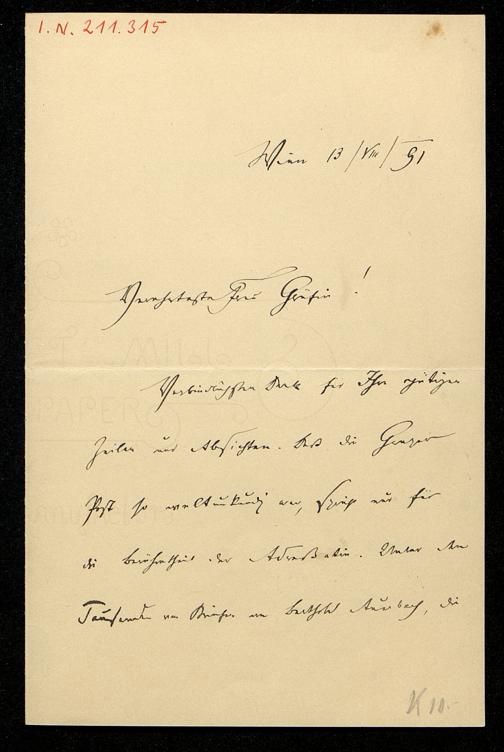 I.N. 211.315
Wien 13/VIII/91
Verehrteste Frau Gräfin!
Verbindlichsten Dank für Ihre gütigen
Zeilen und Absichten. Daß die Grazer
Post so weltunkundig war, spricht nur für
die Berühmtheit der Adressatin. Unter den
Tausenden von Briefen an Berthold Auerbach, die
K 10.-